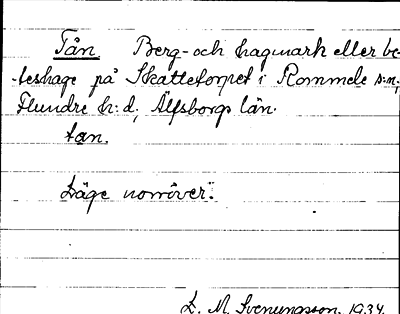 Tån. Berg- och hagmark eller be-
teshage på Skattetorpet i Rommele s:n,
Flundre h:d, Älfsborgs län.
tan.
Läge norröver.
L. M. Svenungsson. 1934.